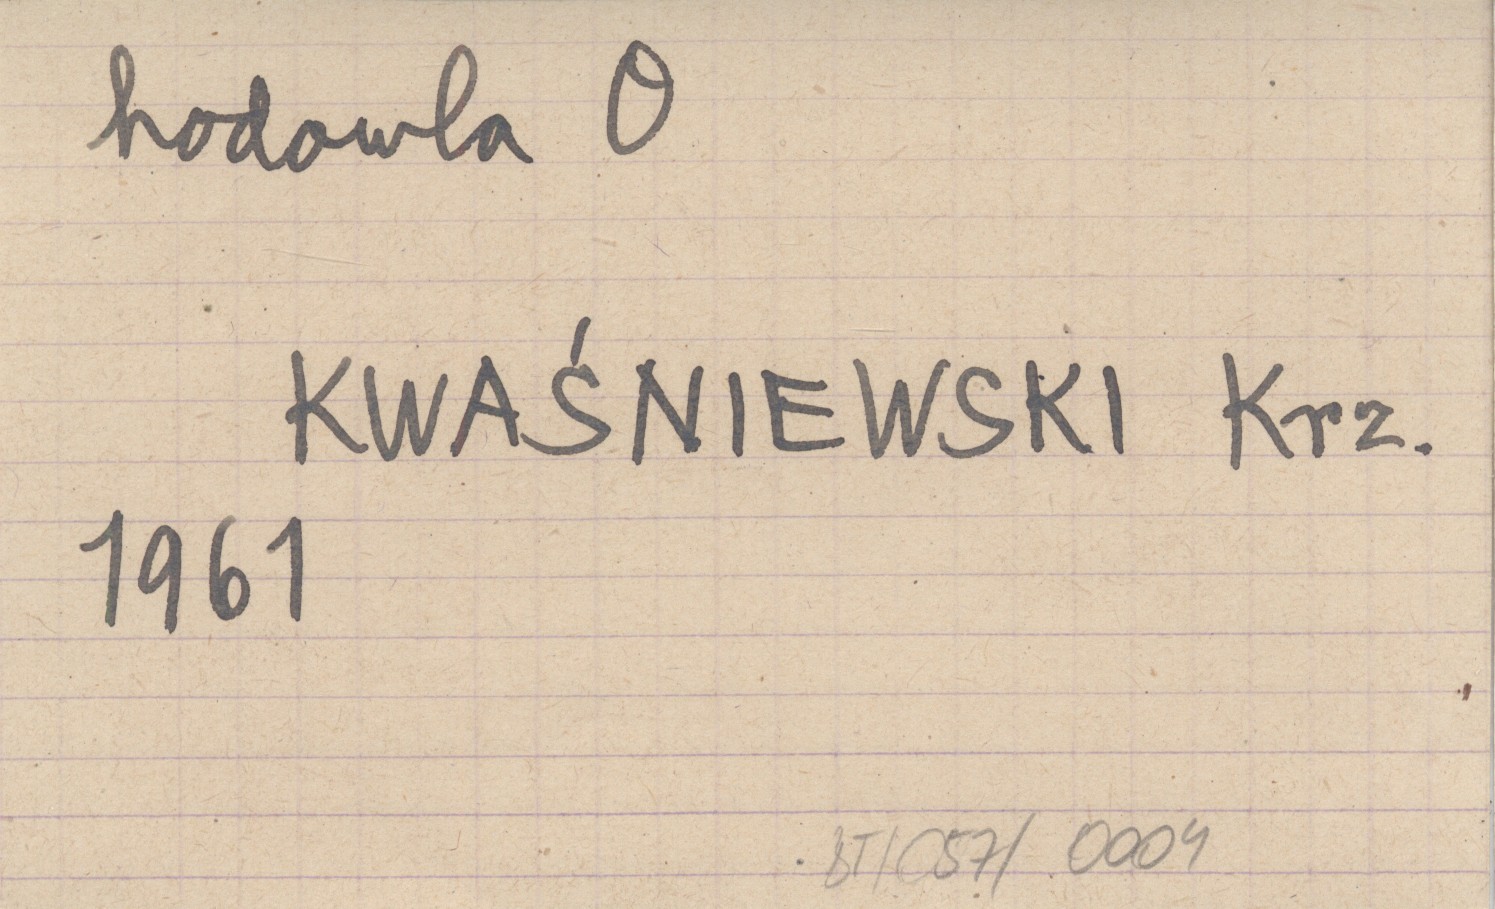 hodowla O
KWAŚNIEWSKI Krz.
1961
BT/057/ 0004